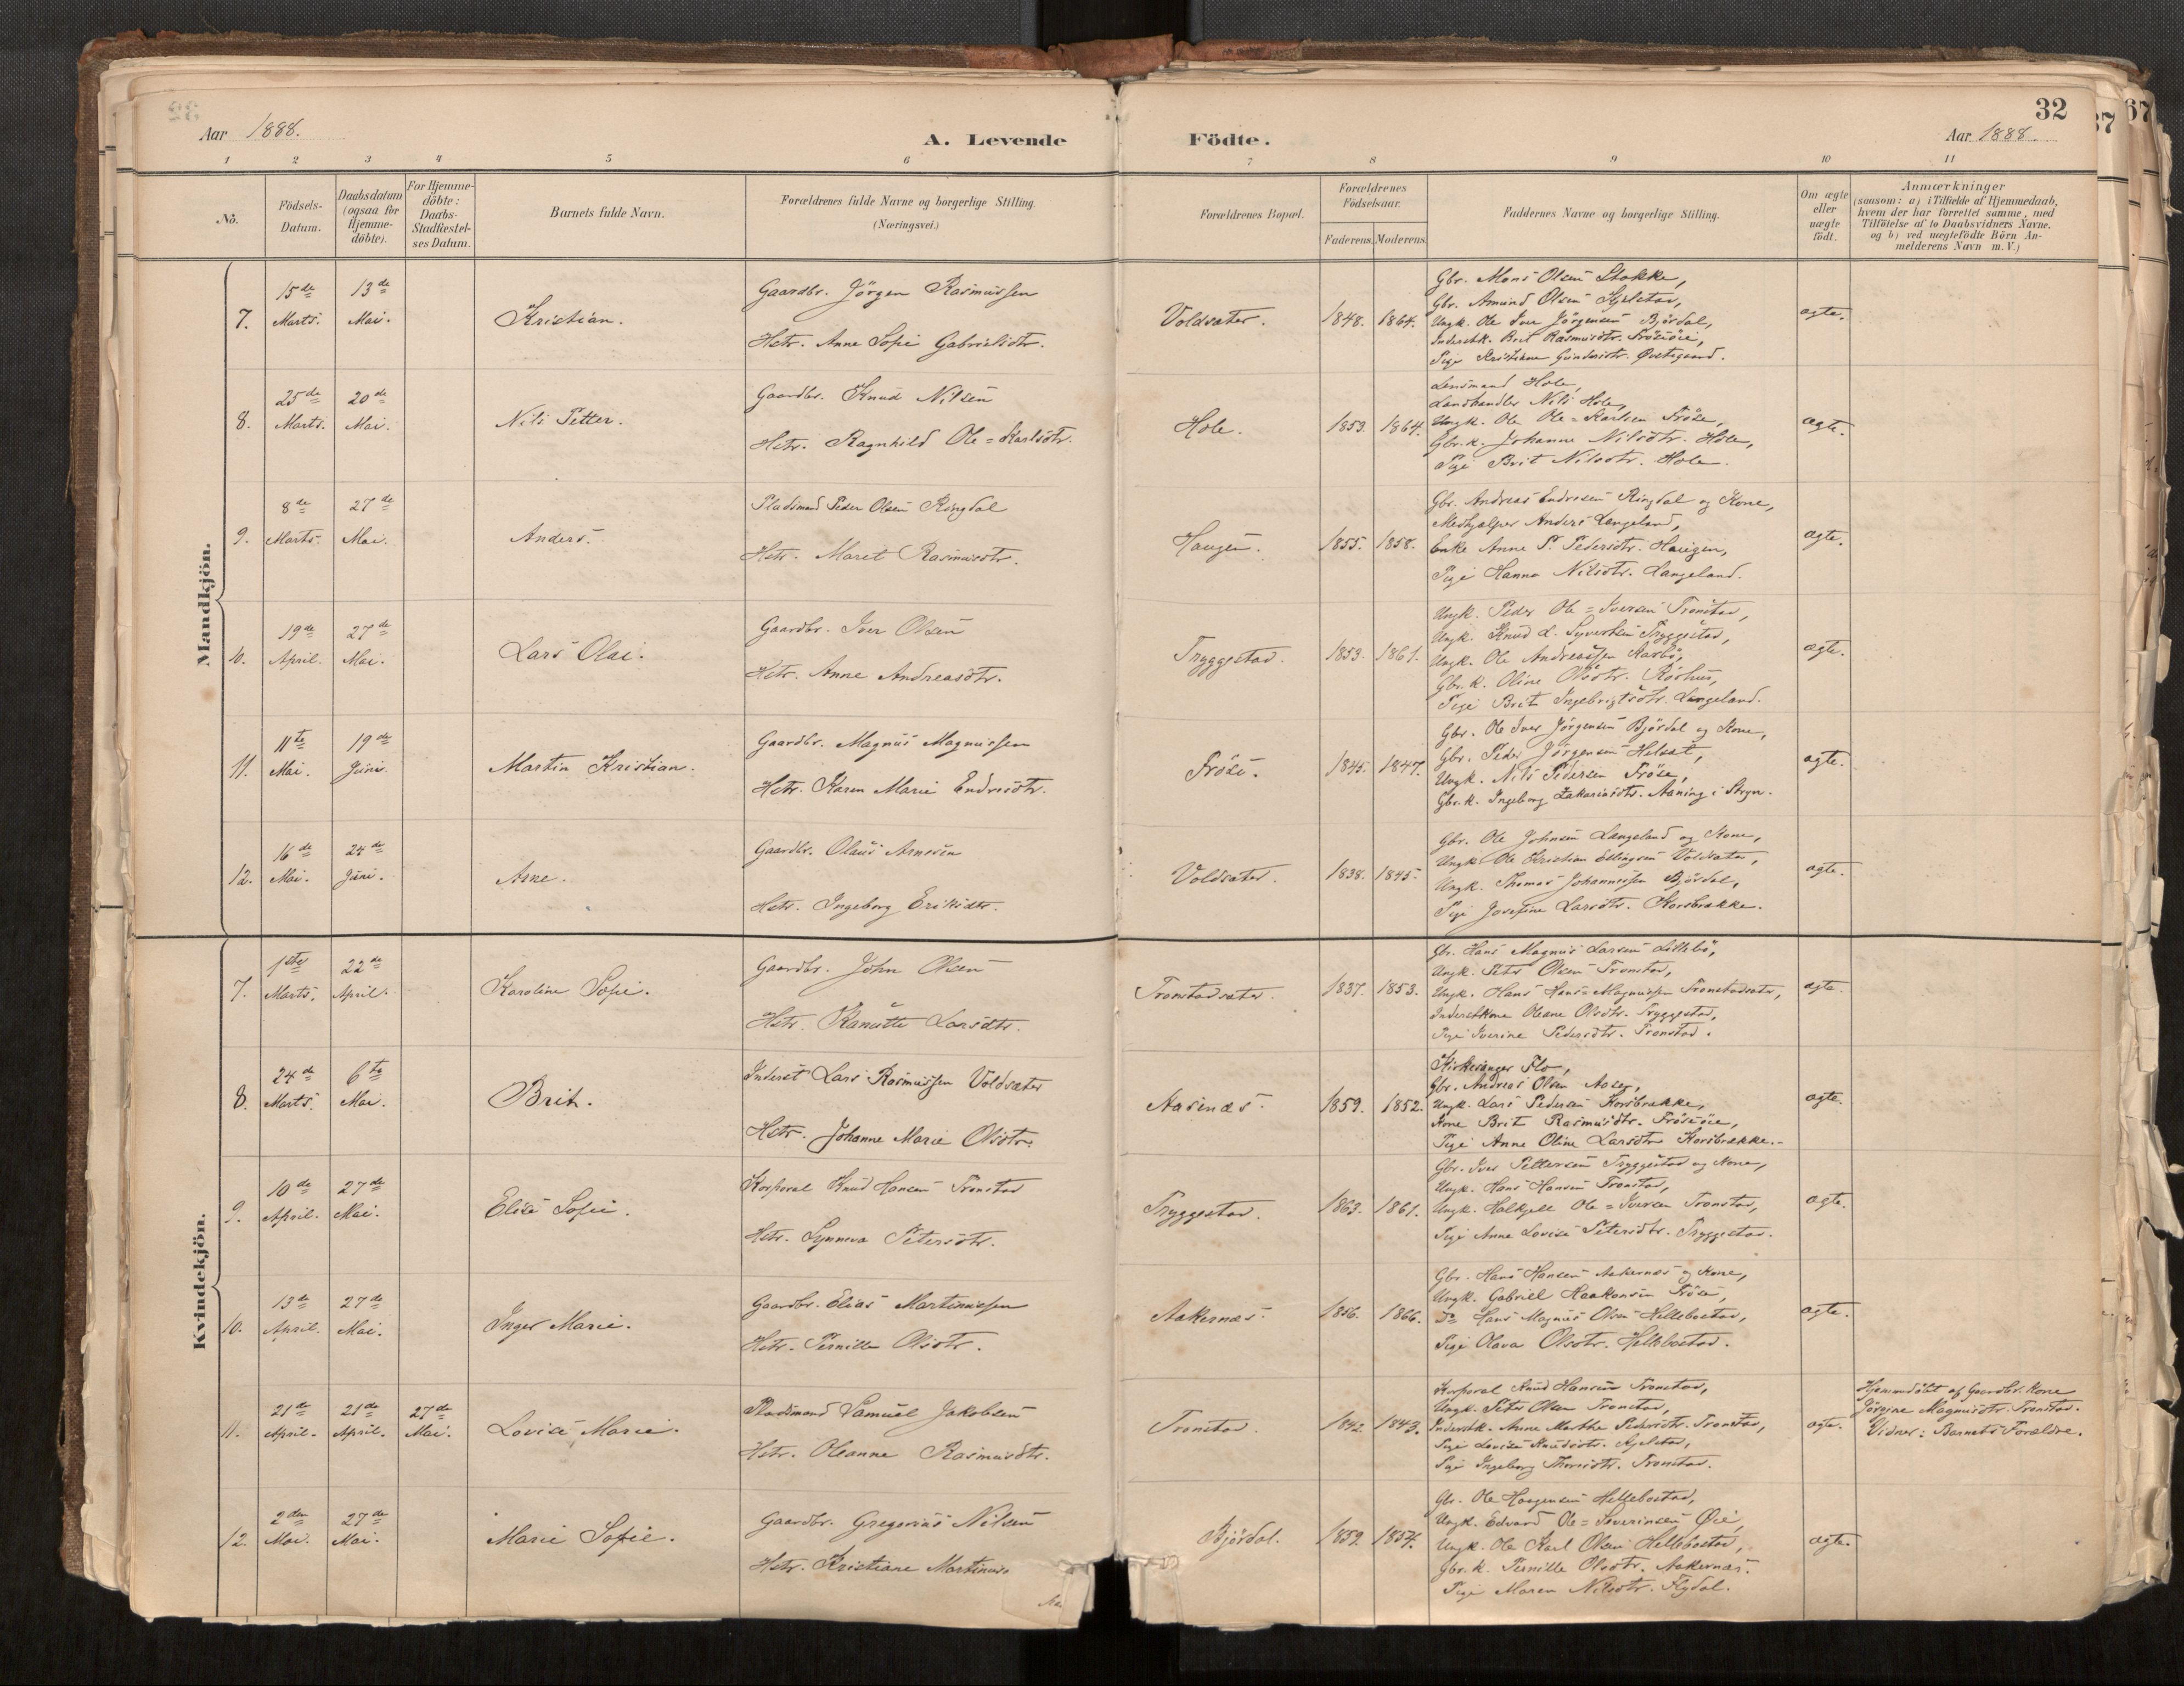 32
Aar 1888.
A. Levende Födte.
Aar 1888.
1 2 3 4 5 6 7 8 9 10 11
No.
Födsels-Datum.
Daabsdatum (ogsaa for Hjemme-döbte).
For Hjemme-döbte: Daabs-Stadfæstel-ses Datum.
Barnets fulde Navn.
Forældrenes fulde Navne og borgerlige Stilling. (Næringsvei.)
Forældrenes Bopæl.
Forældrenes Födselsaar.
Faderens. Moderens.
Faddernes Navne og borgerlige Stilling.
Om ægte eller uægte födt.
Anmærkninger
(saasom: a) i Tilfælde af Hjemmedaab,
hvem der har forrettet samme, med
Tilföielse af to Daabsvidners Navne.
og b) ved uægtefödte Börn An-
melderens Navn m. V.)
Mandkjön.
7. 15de Marts. 13de Mai. Kristian.
Gaardbr. Jörgen Rasmussen
Hstr. Anne Sofie Gabrielsdtr.
Voldsæter. 1848. 1864.
Gbr. Mons Olsen Stokke,
Gbr. Amund Olsen Hjelstad,
Ungk. Ole Iver Jörgensen Björdal,
Inderstk. Brit Rasmusdtr. Fröseöie,
Pige Kristiane Gundersdtr. Østegaard.
ægte.
8. 25de Marts. 20de Mai. Nils Petter.
Gaardbr. Knud Nilsen
Hstr. Ragnhild Ole=Karlsdtr.
Hole. 1853. 1864.
Lensmand Hole,
Landhandler Nils Hole,
Ungk. Ole Ole=Karlsen Fröse,
Gbr.k. Johanne Nilsdtr. Hole,
Pige Brit Nilsdtr. Hole.
ægte.
9. 8de Marts. 27de Mai. Anders.
Pladsmand Peder Olsen Ringdal
Hstr. Maret Rasmusdtr.
Haugen. 1855. 1858.
Gbr. Andreas Endresen Ringdal og Kone,
Medhjælper Anders Langeland,
Enke Anne P. Pedersdtr. Haugen,
Pige Hanna Nilsdtr. Langeland.
ægte.
10. 19de April. 27de Mai. Lars Olai.
Gaardbr. Iver Olsen
Hstr. Anne Andreasdtr.
Tryggestad. 1853. 1861.
Ungk. Peder Ole=Iversen Tronstad,
Ungk. Knud L. Syvertsen Tryggestad,
Ungk. Ole Andreassen
Gbr.k. Oline Olsdtr. Röshus,
Pige Brit Ingebrigtsdtr. Langeland.
ægte.
11. 11te Mai. 19de Juni. Martin Kristian.
Gaardbr. Magnus Magnussen
Hstr. Karen Marie Endresdtr.
Fröse. 1845. 1847.
Gbr. Ole Iver Jörgensen Björdal og Kone,
Gbr. Peder Jörgensen Helset,
Ungk. Nils Pedersen Fröse,
Gbr.k. Ingeborg Zakariasdtr. Aaning i Stryn.
ægte.
12. 16de Mai. 24de Juni. Arne.
Gaardbr. Olaus Arnesen
Hstr. Ingeborg Eriksdtr.
Voldsæter. 1838. 1845.
Gbr. Ole Johnsen Langeland og Kone,
Ungk. Ole Kristian Ellingsen Voldsæter,
Ungk. Thomas Johannessen Björdal,
Pige Josefine Larsdtr. Korsbrække.
ægte.
Kvindekjön.
7. 1ste Marts. 22de April. Karoline Sofie.
Gaardbr. John Olsen
Hstr. Kanutte Larsdtr.
Tronstadsæter. 1837. 1853.
Gbr. Hans Magnus Larsen Lillebö,
Ungk. Peter Olsen Tronstad,
Ungk. Hans Hans=Magnussen Tronstadsæter,
Inderstkone Oleane Olsdtr. Tryggestad,
Pige Iverine Pedersdtr. Tronstad.
ægte.
8. 24de Marts. 6te Mai. Brit.
Inderst Lars Rasmussen Voldsæter
Hstr. Johanne Marie Olsdtr.
Aasenæs. 1859. 1852.
Kirkesanger Flo,
Gbr. Andreas Olsen Aasen,
Ungk. Lars Pedersen Korsbrække,
Kone Brit Rasmusdtr. Fröseöie,
Pige Anne Oline Larsdtr. Korsbrække.
ægte.
9. 10de April. 27de Mai. Elise Sofie.
Korporal Knud Hansen Tronstad
Hstr. Synneva Petersdtr.
Tryggestad. 1863. 1861.
Gbr. Iver Pettersen Tryggestad og Kone,
Ungk. Hans Hansen Tronstad,
Ungk. Halkjell Ole=Iversen Tronstad,
Pige Anne Lovise Petersdtr. Tryggestad.
ægte.
10. 13de April. 27de Mai. Inger Marie.
Gaardbr. Elias Martinussen
Hstr. Pernille Olsdtr.
Aakernæs. 1856. 1866.
Gbr. Hans Hansen Aakernæs og Kone,
Ungk. Gabriel Haakonsen Fröse,
Do Hans Magnus Olsen Hellebostad,
Pige Olava Olsdtr. Hellebostad.
ægte.
11. 21de April. 21de April. 27de Mai. Lovise Marie.
Pladsmand Samuel Jakobsen
Hstr. Oleanne Rasmusdtr.
Tronstad. 1842. 1843.
Korporal Knud Hansen Tronstad,
Ungk. Peter Olsen Tronstad,
Inderstk. Anne Marthe Pedersdtr. Tronstad,
Pige Lovise Knudsdtr. Hjelstad,
Pige Ingeborg Thoresdtr. Tronstad.
ægte.
Hjemmedöbt af Gaardbr. Kone
Jörgine Magnusdtr. Tronstad.
Vidner: Barnets Forældre.
12. 2den Mai. 27de Mai. Marie Sofie.
Gaardbr. Gregorius Nilsen
Hstr. Kristiane Martinus
Björdal. 1859. 1857.
Gbr. Ole Haagensen Hellebostad,
Ungk. Edvard Ole=Severinsen Øie,
Ungk. Ole Karl Olsen Hellebostad,
Gbr.k. Pernille Olsdtr. Aakernæs.
Pige Maren Nilsdtr. Flydal.
ægte.